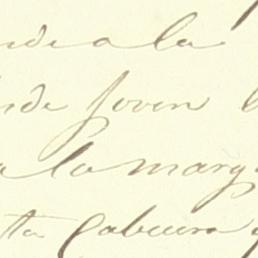 nde a la
nde Joven
a la marg
ta Cabecera